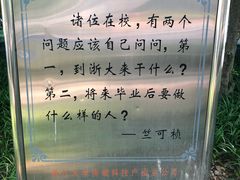 诸位在校，有两个
问题应该自己问问，第
一，到浙大来干什么？
第二，将来毕业后要做
什么样的人？
—竺可桢